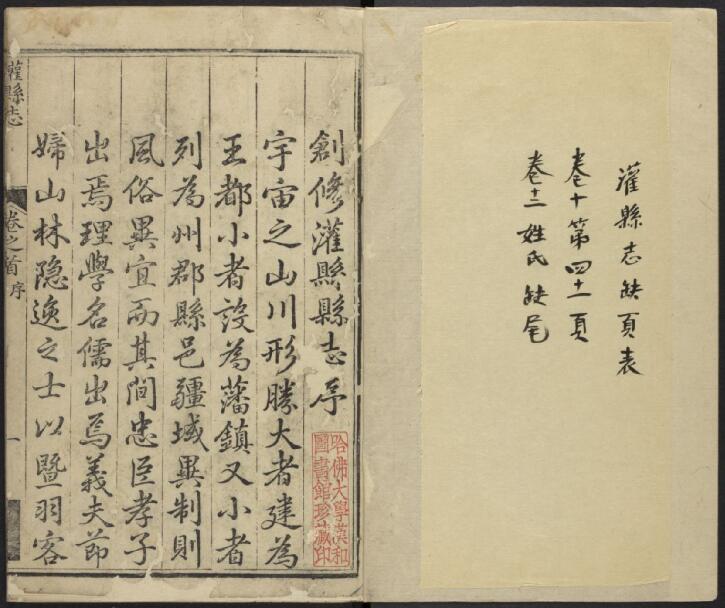 灌縣志缺頁表
卷十第四十一頁
卷十二姓氏缺尾
創修灌縣縣志序
宇宙之山川形勝大者建為
王都小者設為藩鎮又小者
列為州郡縣邑疆域異制則
風俗異宜而其間忠臣孝子
出焉理學名儒出焉義夫節
婦山林隐逸之士以暨羽客
哈佛大學漢和
圖書館珍藏印
灌縣志
卷之首 序
一